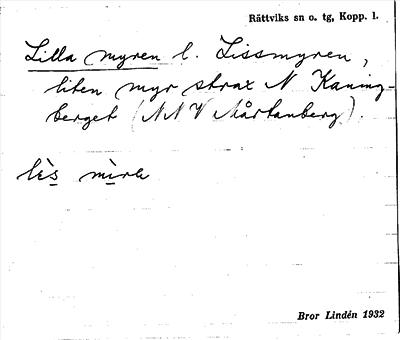 Rättviks sn o. tg, Kopp. l.
Lilla myren l. Lissmyren,
liten myr strax N Kaning-
berget (NNV Mårtanberg).
lès
Bror Lindén 1932